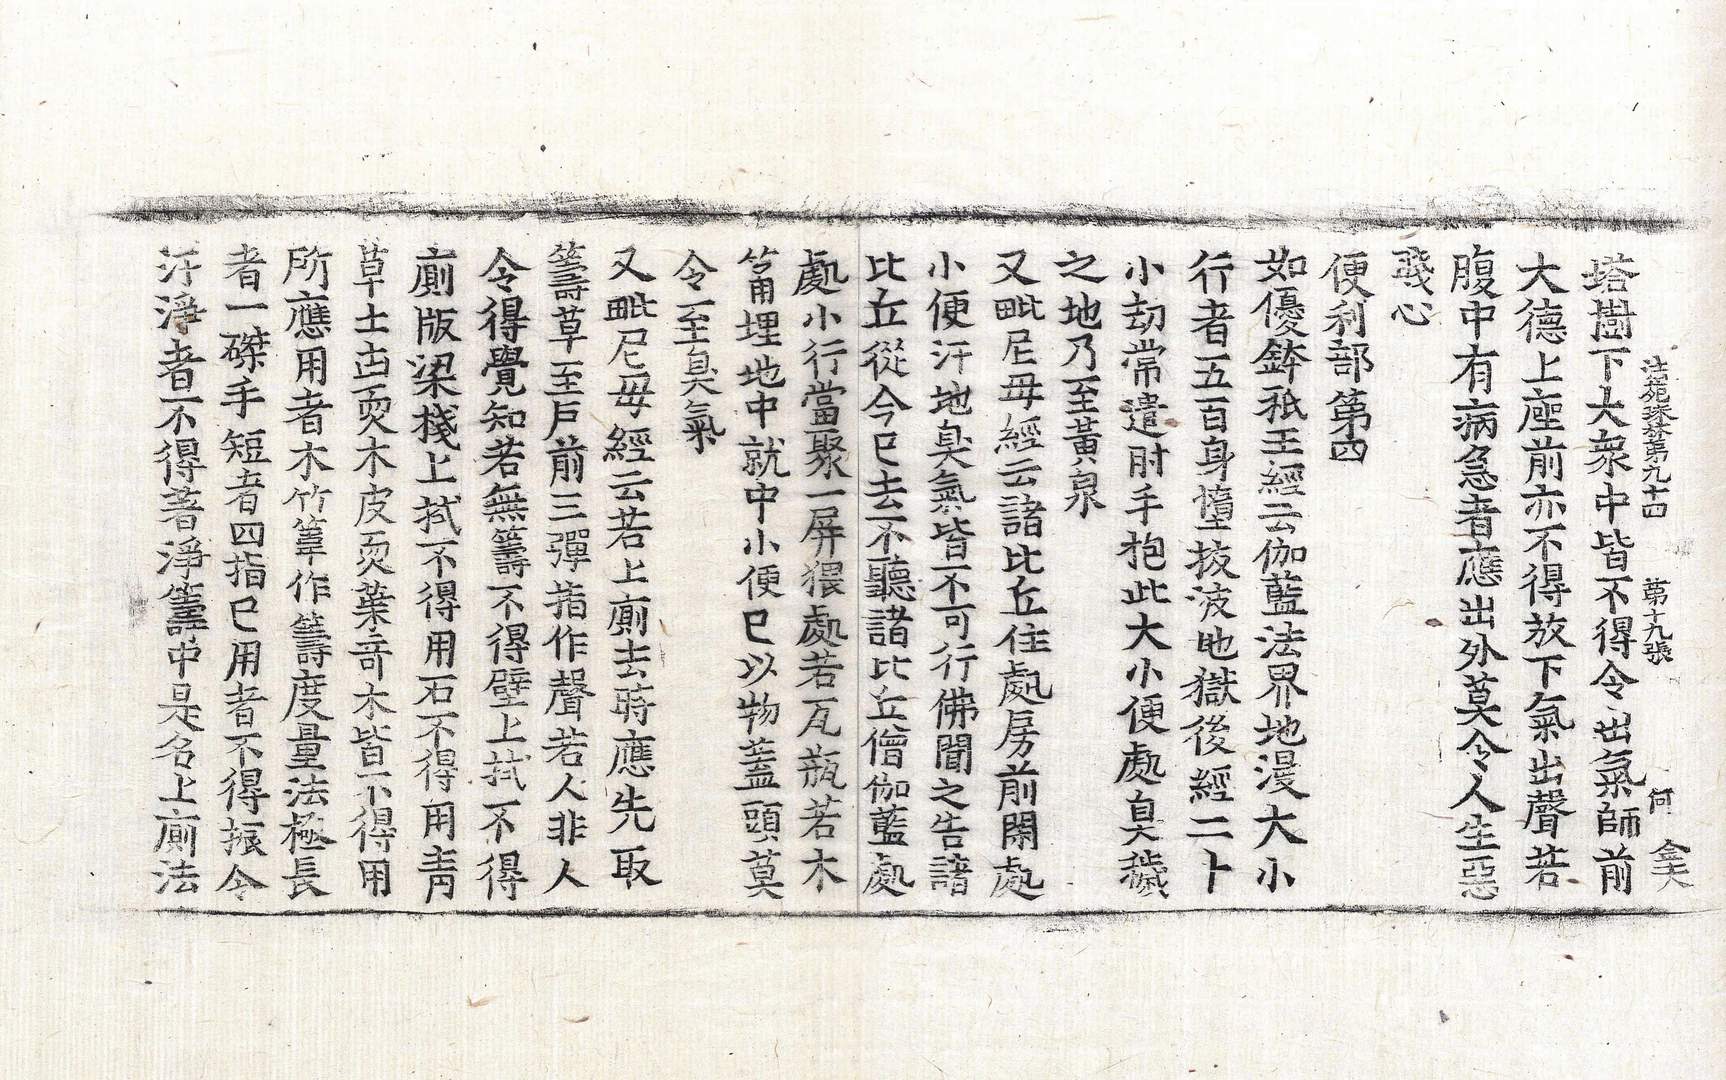 法苑珠林第九十四 第十九張 何
塔樹下大衆中皆不得令出氣師前
大德上座前亦不得放下氣出聲若
腹中有病急者應出外莫令人生惡
賤心
便利部第四
如優鉢祇王經云伽藍法界地漫大小
行者五百身墮拔波地獄後經二十
小劫常遣肘手抱此大小便處臭穢
之地乃至黃泉
又毗尼毋經云諸比丘住處房前閑處
小便汙地臭氣皆不可行佛聞之告諸
比丘從今已去不聽諸比丘僧伽藍處
處小行當聚一屏猥處若瓦瓶若木
筩埋地中就中小便已以物蓋頭莫
令至臭氣
又毗尼毋經云若上廁去時應先取
籌草至戶前三彈指作聲若人非人
令得覺知若無籌不得壁上拭不得
廁版梁棧上拭不得用石不得用青
草土凷耎木皮耎葉奇木皆不得用
所應用者木竹葦作籌度量法極長
者一磔手短者四指已用者不得振令
汙淨者不得著淨籌中是名上廁法